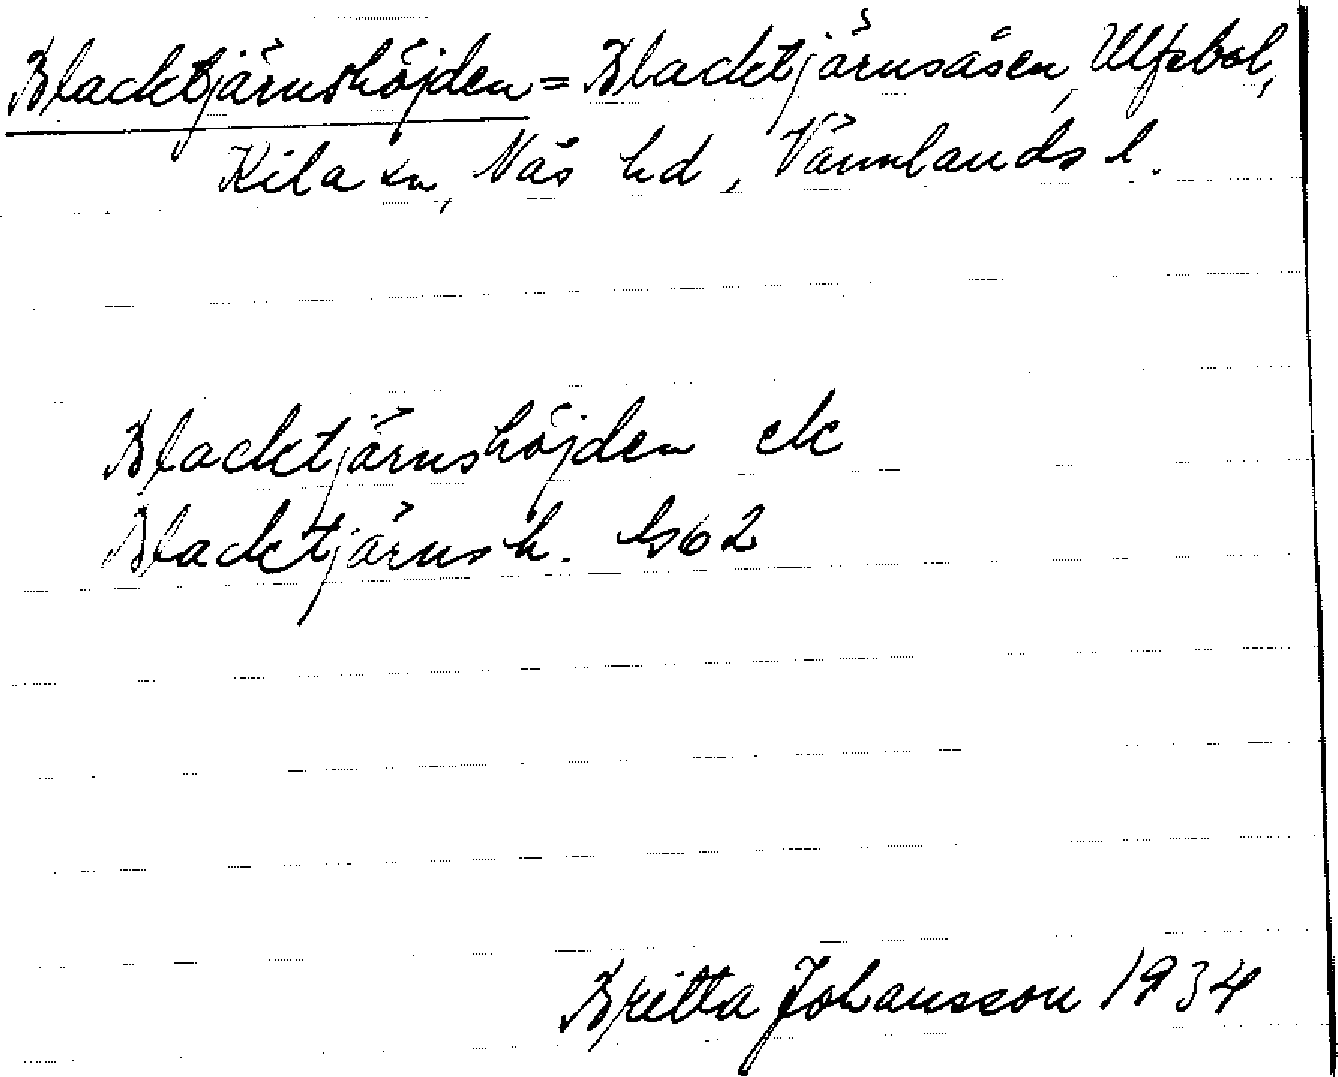 Blacktjärnshöjden = Blacktjärnsåsen, Ulfsbol,
Kila sn, Näs hd, Värmlands l.
Blacktjärnshöjden ek
Blacktjärnsh. Gs62
Britta Johansson 1934